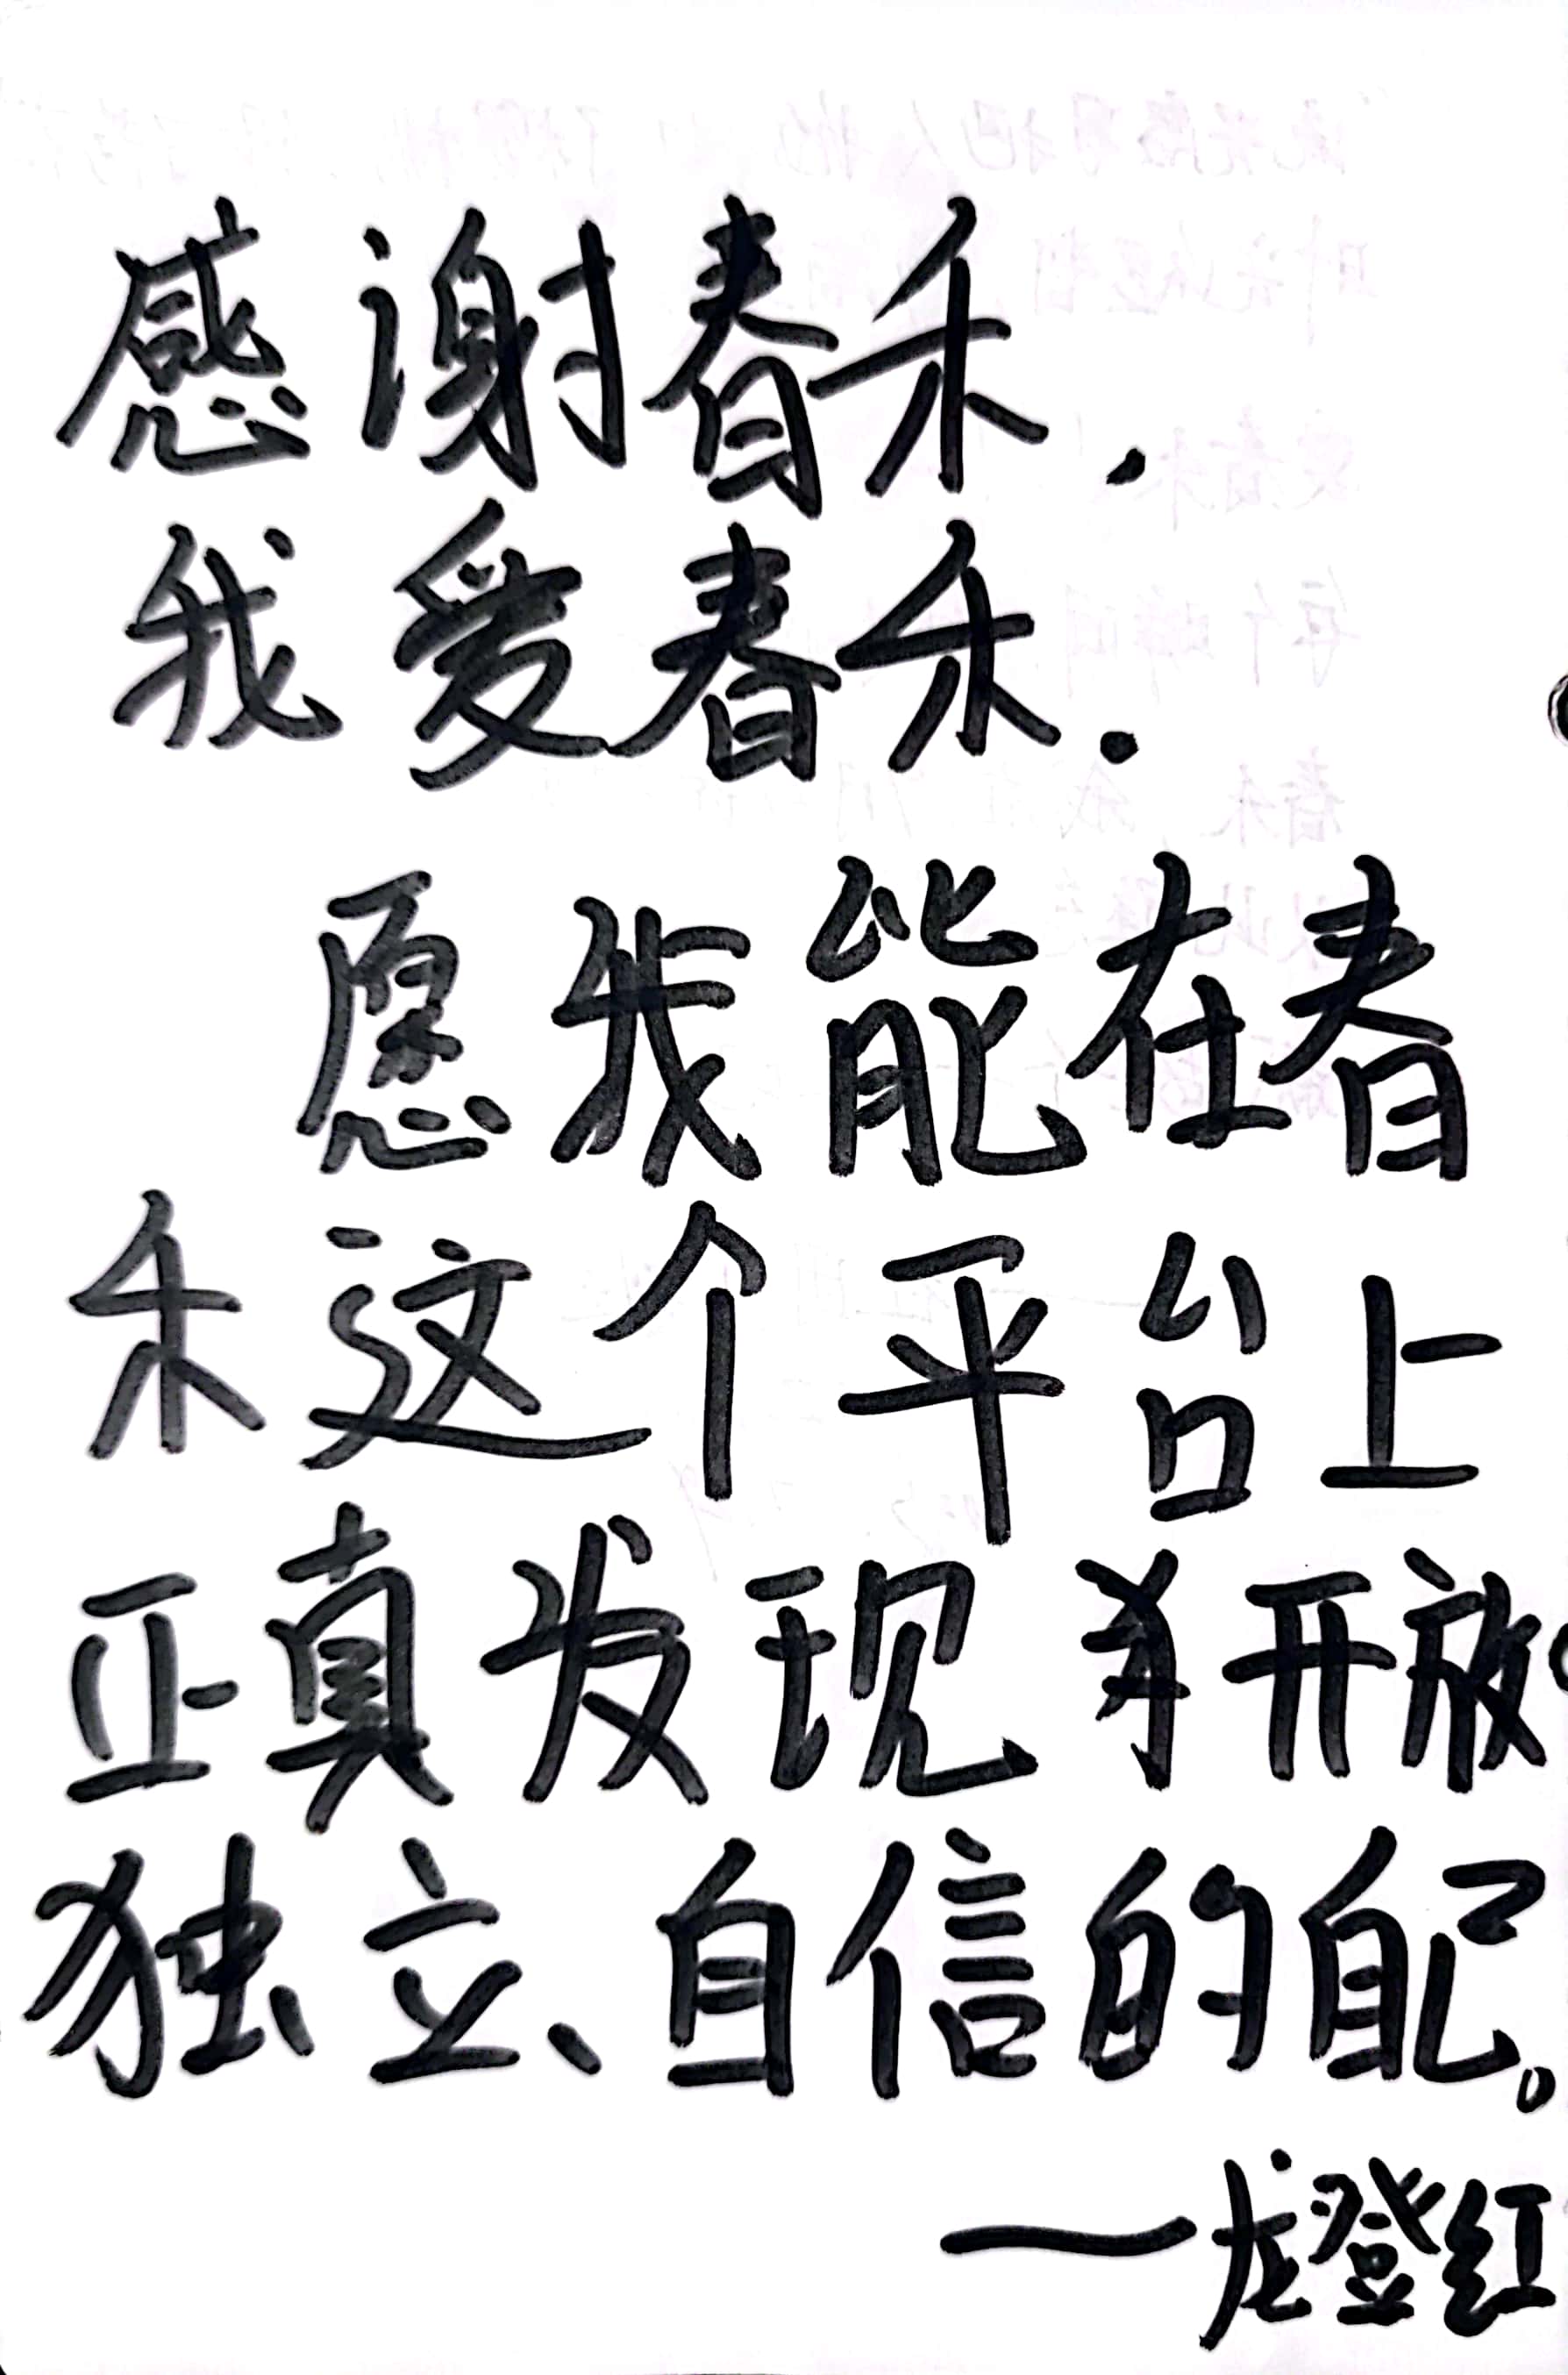 感谢春禾.
我爱春禾.
愿我能在春
禾这个平台上
正真发现 开放
独立、自信的自己。
——龙登红